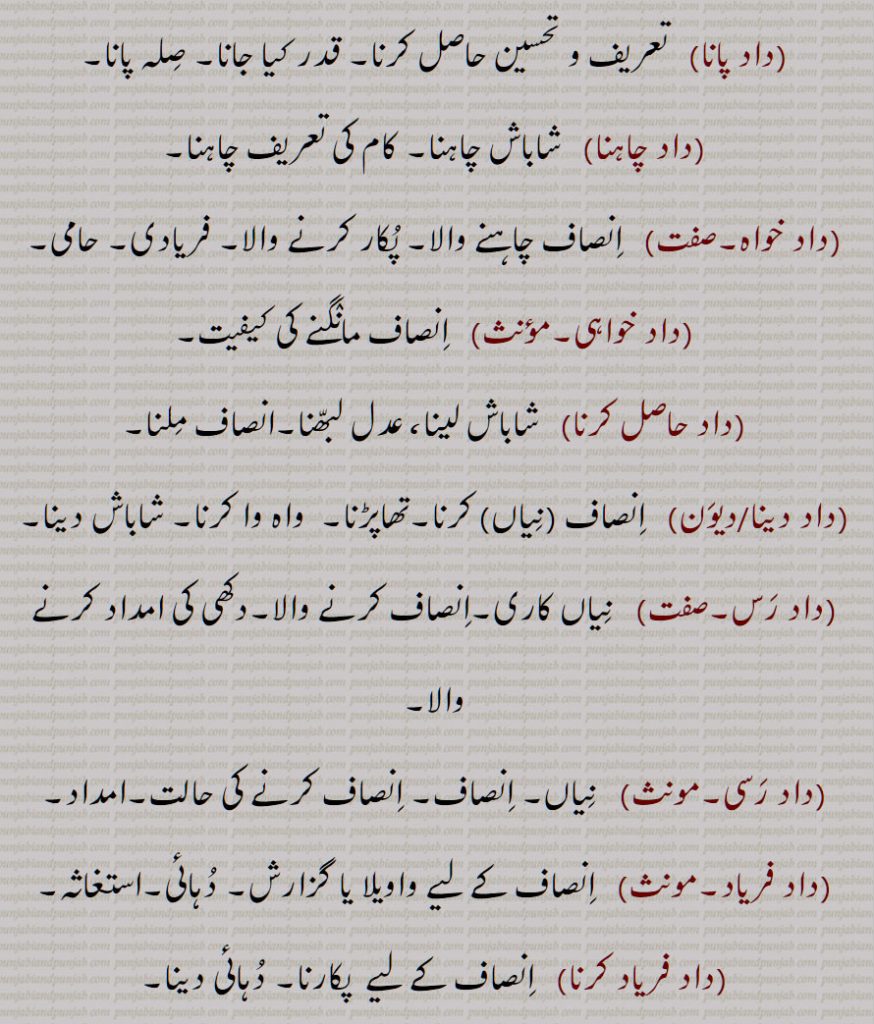 (داد پانا) تعریف و تحسین حاصل کرنا۔ قدر کیا جانا۔ صِلہ پانا۔
(داد چاہنا) شاباش چاہنا۔ کام کی تعریف چاہنا۔
(داد خواہ۔صفت) اِنصاف چاہنے والا۔ پُکار کرنے والا۔ فریادی۔ حامی۔
(داد خواہی۔مؤنث) اِنصاف مانگنے کی کیفیت۔
(داد حاصل کرنا) شاباش لینا، عدل لبھّنا۔انصاف مِلنا۔
(داد دینا/دیوَن) اِنصاف (نِیاں) کرنا۔تھاپڑنا۔ واہ وا کرنا۔ شاباش دینا۔
(داد رَس۔صفت) نِیاں کاری۔اِنصاف کرنے والا۔دکھی کی امداد کرنے
والا۔
(داد رَسی۔مونث) نِیاں۔ اِنصاف۔ اِنصاف کرنے کی حالت۔امداد۔
(داد فریاد۔مونث) اِنصاف کے لیے واویلا یا گزارش۔ دُہائی۔استغاثہ۔
(داد فریاد کرنا) اِنصاف کے لیے پکارنا۔ دُہائی دینا۔